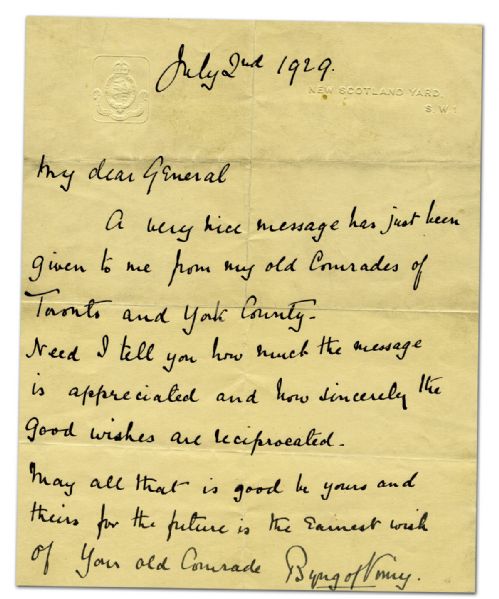 July 2nd 1929.
NEW SCOTLAND YARD.
S.W.1
My dear General
A very nice message has just been
given to me from my old Comrades of
Toronto and York County -
Need I tell you how much the message
is appreciated and how sincerely the
good wishes are reciprocated -
May all that is good be yours and
theirs for the future is the earnest wish
of Your old Comrade Byng of Vimy.